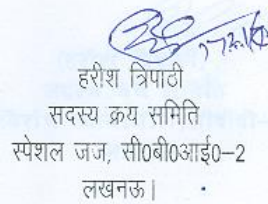 हरीश त्रिपाठी
सदस्य क्रय समिति
स्पेशल जज, सी0बी0आई0–2
लखनऊ।